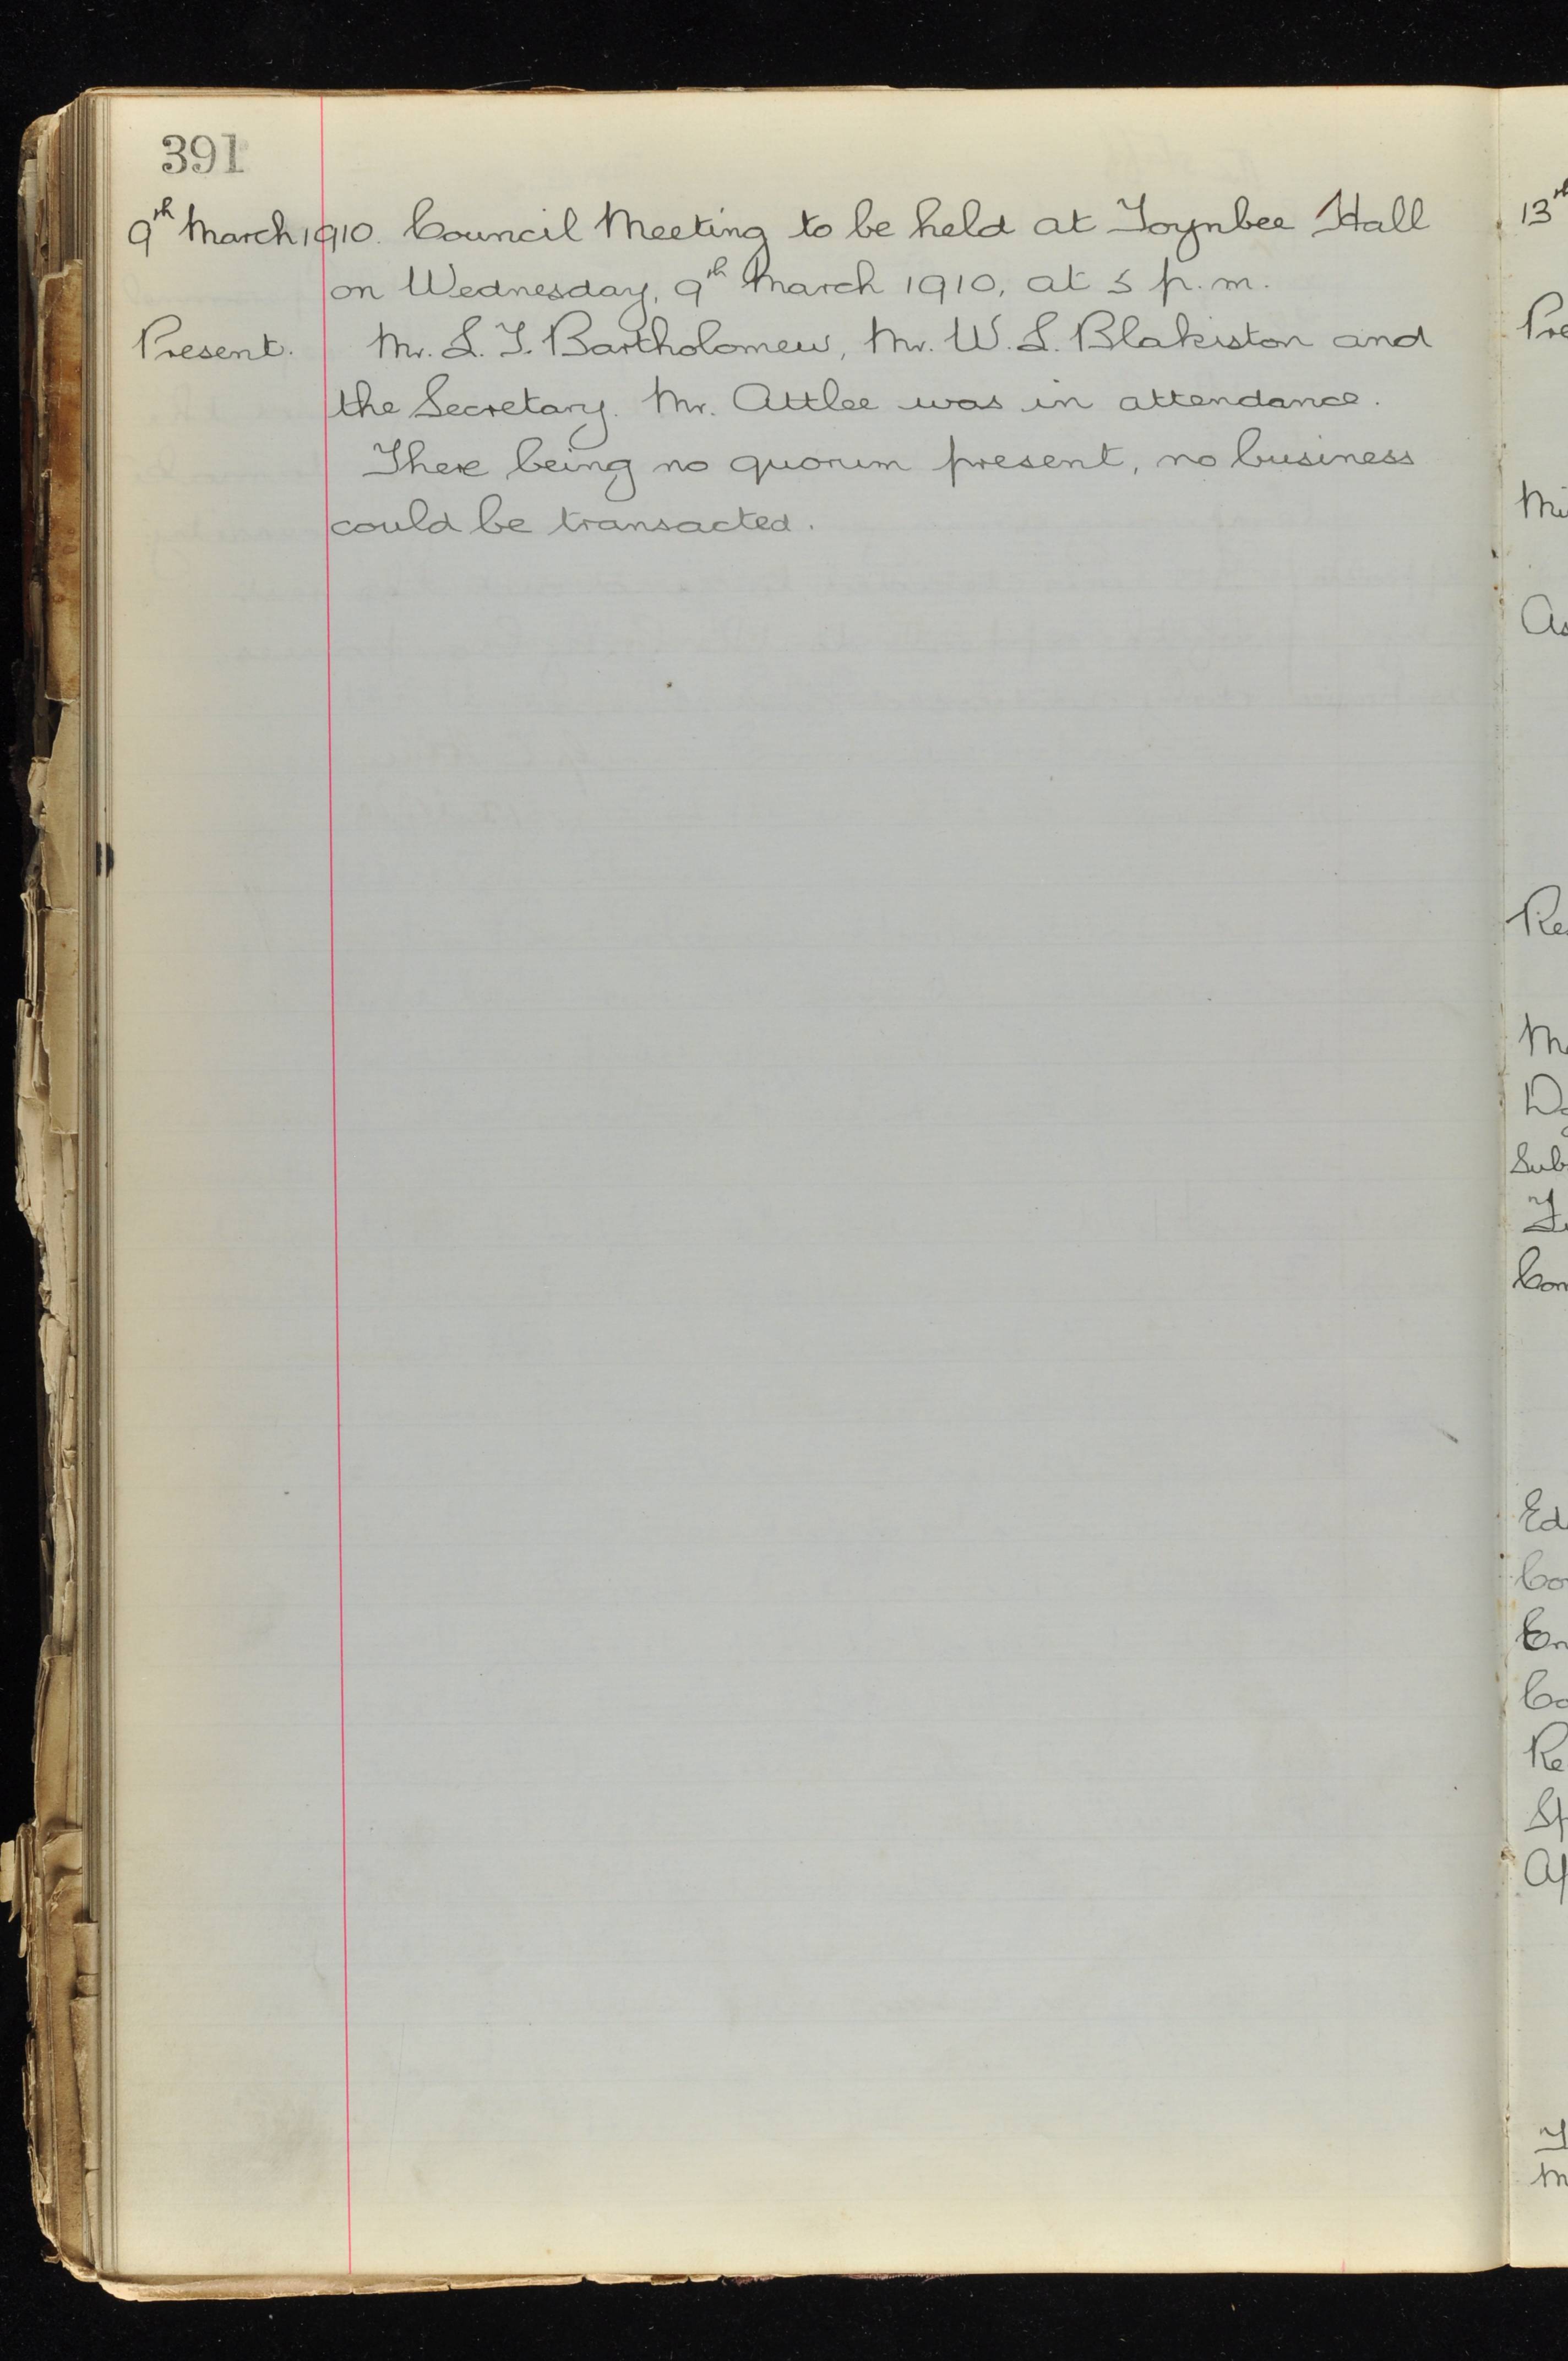 391
9th March 1910. Council Meeting to be held at Toynbee Hall
on Wednesday, 9th March 1910, at 5 p.m.
Present. Mr. L. T. Bartholomew, Mr. W. L. Blakiston and
the Secretary. Mr. Attlee was in attendance.
There being no quorum present, no business
could be transacted.
13th
Pre
Mi
As
Re
Me
Do
Sub
Con
Ed
Co
Co
Re
Sp
Af